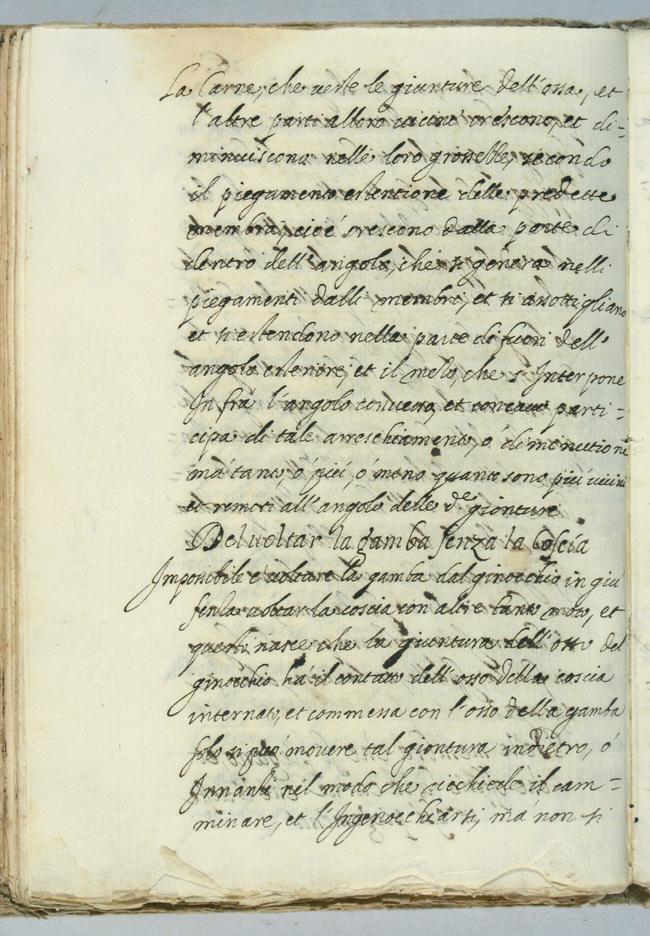 La Carne, che veste le giunture dell'ossa, et
l'altre parti alloro vicine crescono, et di=
minuiscono nelle loro grossezze, secondo
il piegamento estentione delle predette
membra, cioè crescono dalla parte di
dentro dell'angolo, che si genera nelli
piegamenti dalli membri, et si assottigliano
et si estendono nella parte di fuori dell'
angolo esteriore, et il mezo, che s'Interpone
Infrà l'angolo convesso, et concavo parti=
cipa di tale accreschiamento, ò di minutione
mà tanto, ò più, ò meno quanto sono più vicini
et remoti all'angolo delle d.e gionture
Del voltar la gamba senza la Coscia
Impossibile è voltare la gamba dal ginocchio in giù
senza voltar la coscia con altre tanto moto, et
questo nasce che la giuntura dell'osso del
ginocchio hà il contatto dell'osso della coscia
internato, et commessa con l'osso della gamba
solo si può movere tal giontura indietro, ò
Innanzi nel modo che richiede il cam=
minare, et l'Ingenocchiarsi, mà non si